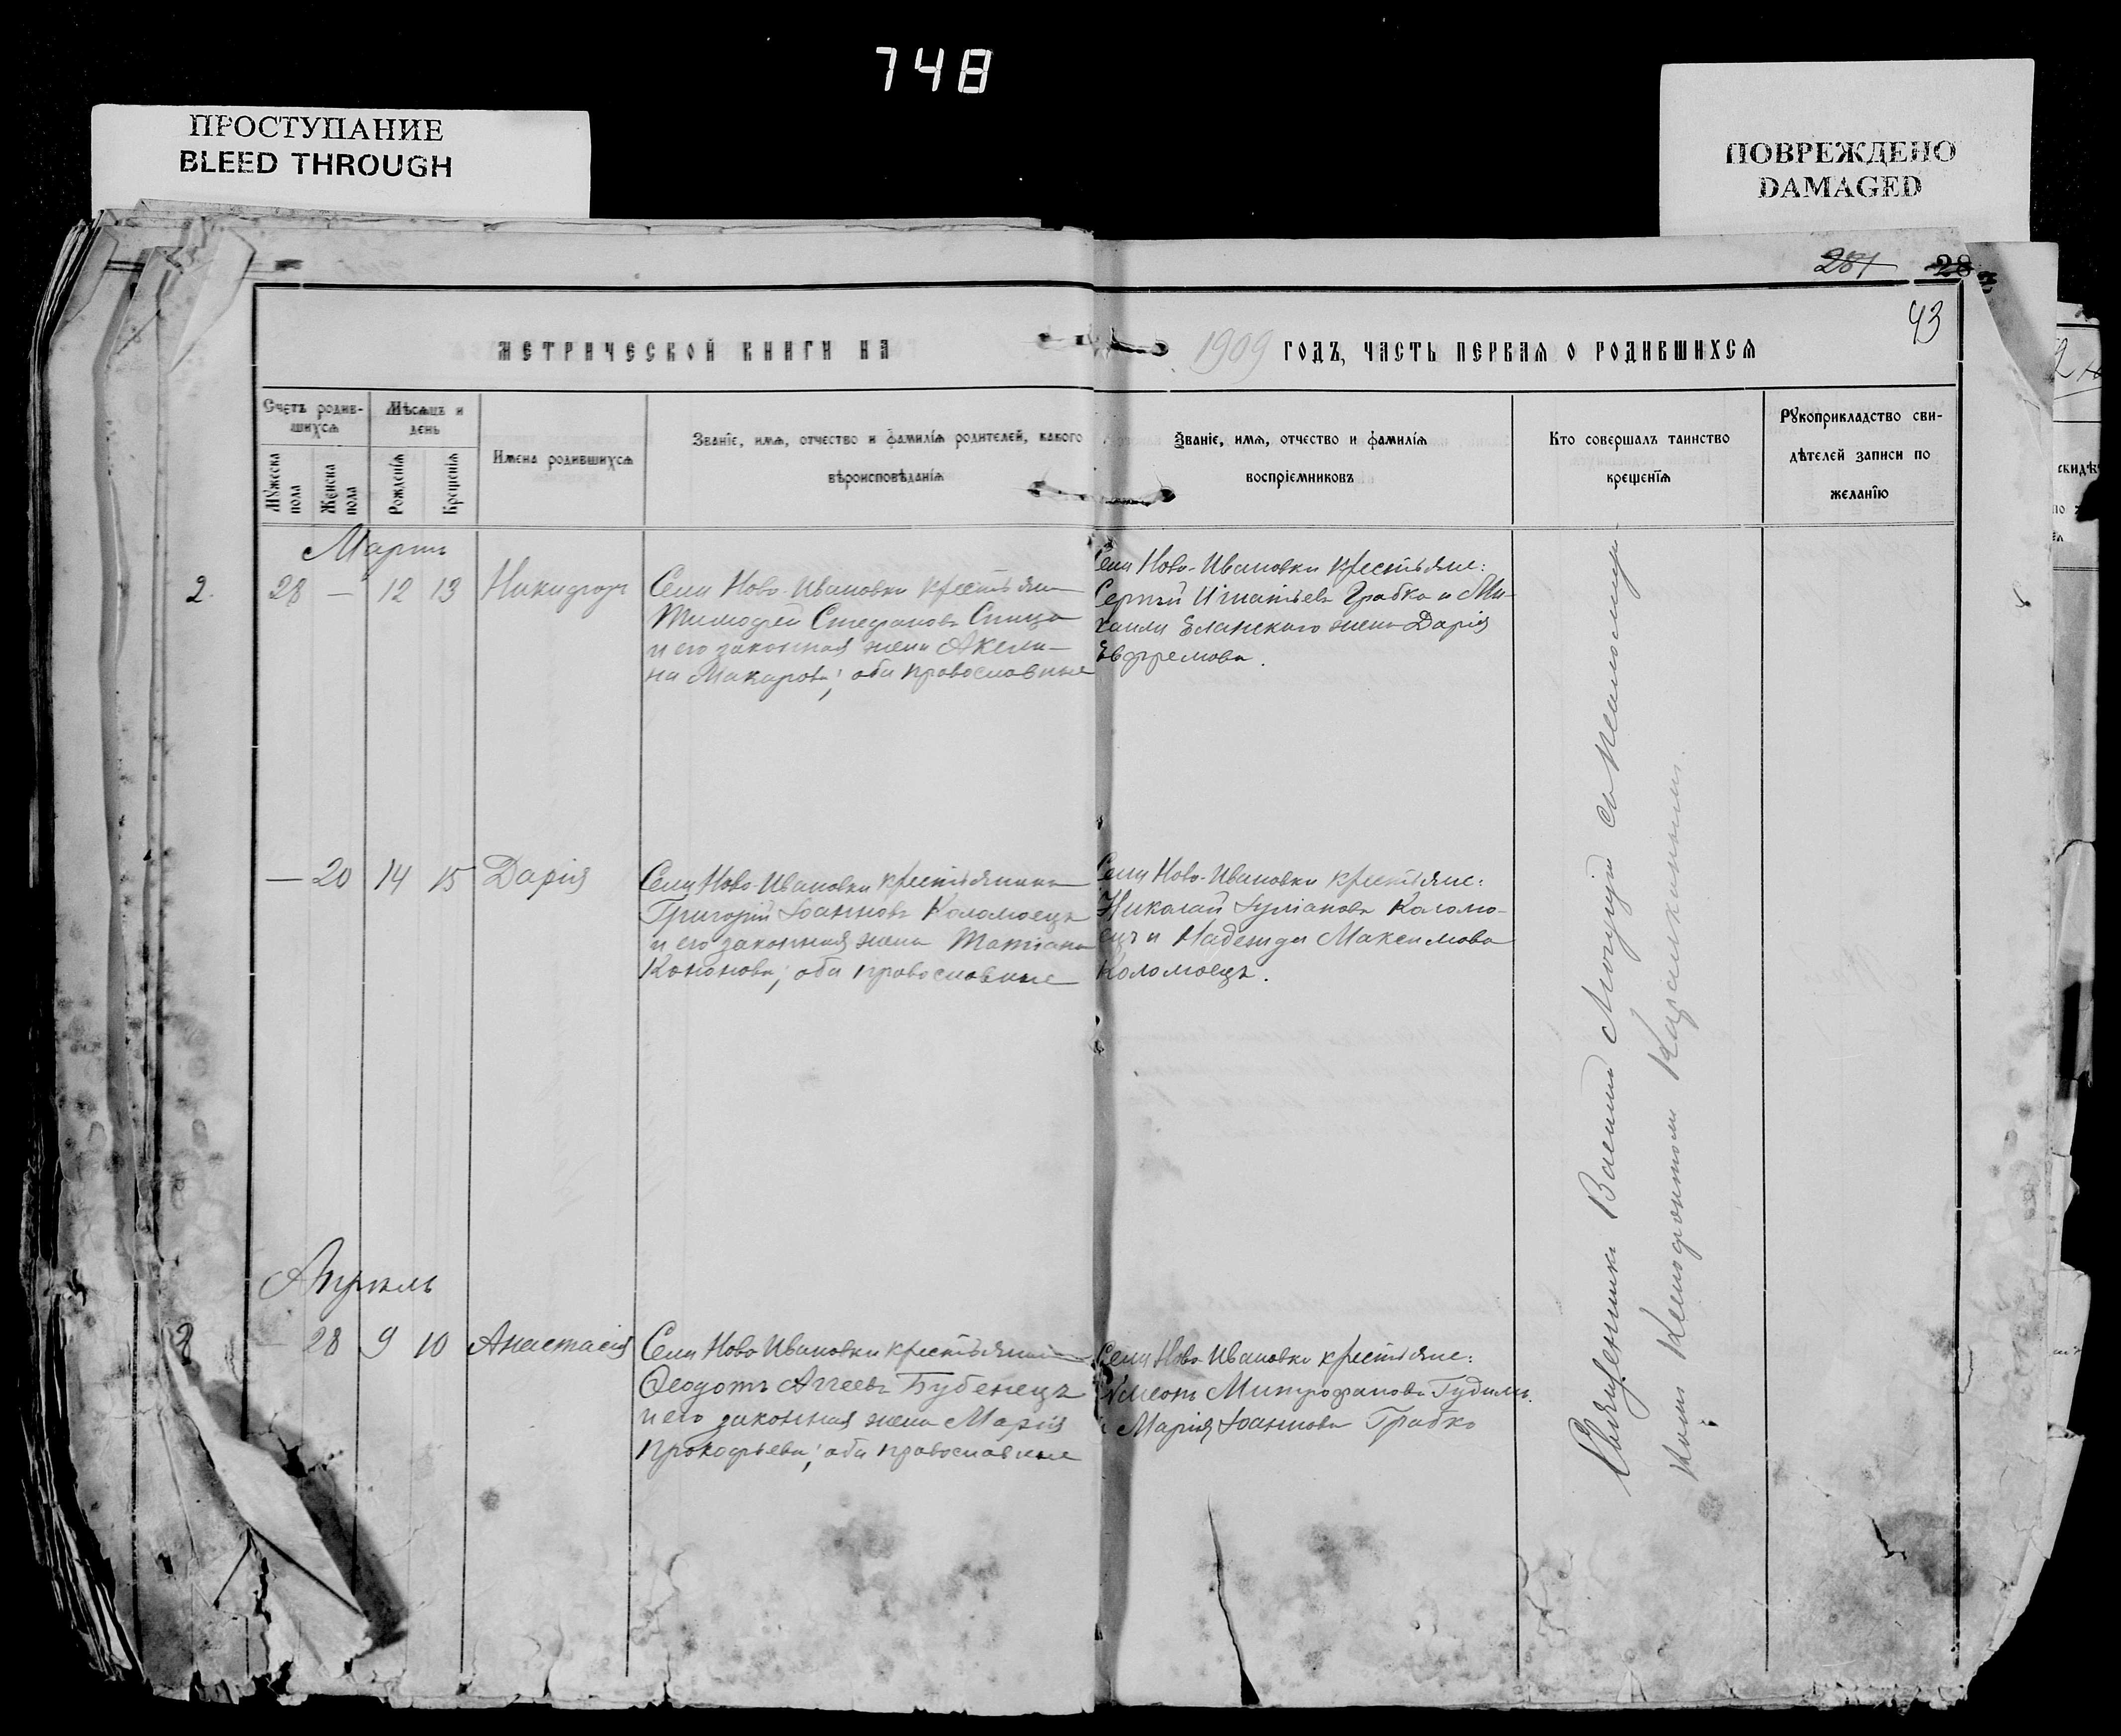 748
ПРОСТУПАНИЕ
BLEED THROUGH
ПОВРЕЖДЕНО
DAMAGED
281 28
43
МЕТРИЧЕСКОЙ КНИГИ НА 1909 ГОДЪ, ЧАСТЬ ПЕРВАЯ О РОДИВШИХСЯ
Счетъ родив-
шихся
Мужеска
пола
Женска
пола
Мѣсяцъ и
день
Рожденія
Крещенія
Имена родившихся
Званіе, имя, отчество и фамилія родителей, какого
вѣроисповѣданія
Званіе, имя, отчество и фамилія
воспріемниковъ
Кто совершалъ таинство
крещенія
Рукоприкладство сви-
дѣтелей записи по
желанію
Мартъ
2. 28 — 12 13 Никифоръ
Села Ново-Ивановки крестьянин
Тимофей Стефановъ Спица
и его законная жена Акели-
на Макарова; оба православные
Села Ново-Ивановки крестьяне:
Сергѣй Игнатьевъ Грабко и Ми-
хаила Еланскаго жена Дарія
Евфремова.
— 20 14 15 Дарія
Села Ново-Ивановки крестьянинъ
Григорій Іоанновъ Коломоецъ
и его законная жена Татіана
Кононова; оба православные
Села Ново-Ивановки крестьяне:
Николай Іуліановъ Коломо-
ецъ и Надежда Максимова
Коломоецъ.
Апрѣль
2 — 28 9 10 Анастасія
Села Ново Ивановки крестьянинъ
Ѳеодотъ Аггеевъ Бубенецъ
и его законная жена Марія
Прокофьева; оба православные
Села Ново Ивановки крестьяне:
Симеонъ Митрофановъ Гудимъ
и Марія Іоаннова Грабко
Священникъ Василій Могучій съ Псаломщи-
комъ Ксенофонтомъ